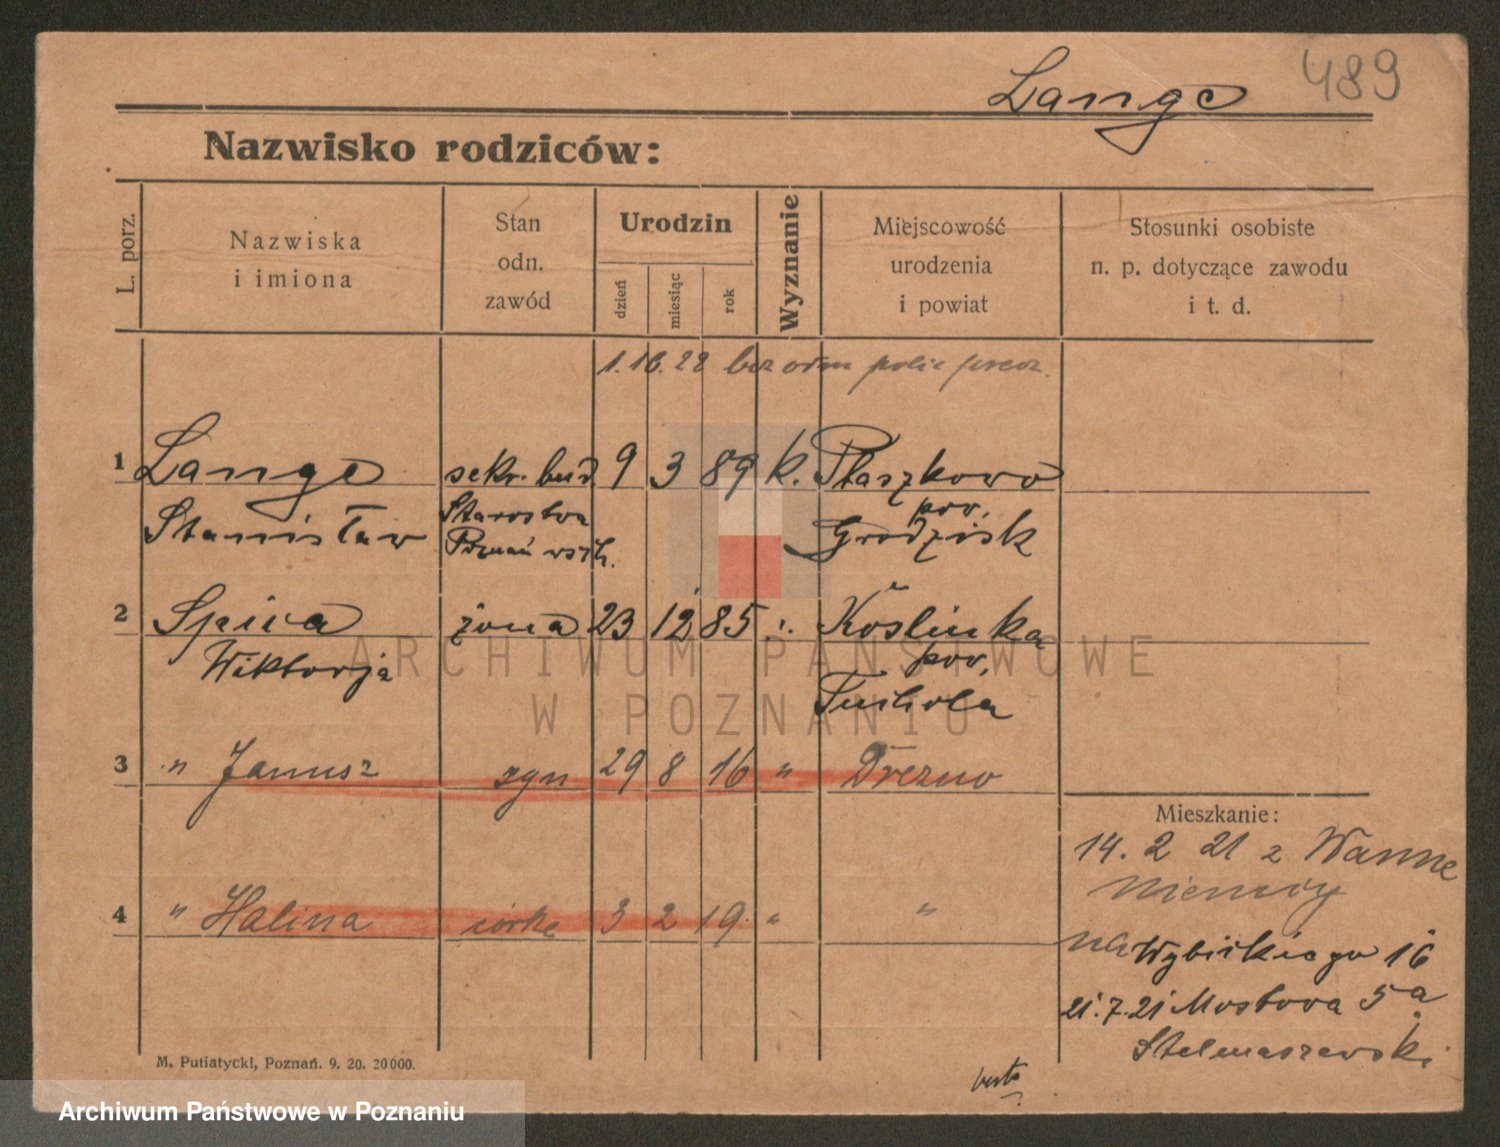 Lange 489
Nazwisko rodziców:
L. porz.
Nazwiska
i imiona
Stan
odn.
zawód
Urodzin
dzień
miesiąc
rok
Wyznanie
Miejscowość
urodzenia
i powiat
Stosunki osobiste
n. p. dotyczące zawodu
i t. d.
1.10.28 bez odm polic
1 Lange sekr. bud 9 3 89 k. Ptaszkowo
Stanisław Starostwa pow.
Poznań wsch. Grodzisk
2 Spica żona 23 12 85 :. Koślinka
Wiktorja pow.
Tuchola
3 " Janusz syn 29 8 16 " Drezno
Mieszkanie:
14. 2 21 z Wanne
Niemcy
4 " Halina córka 3 2 19. " "
na Wybickiego 16
21.7.21 Mostowa 5a
Stelmaszewski
M. Putiatycki, Poznań. 9. 20. 20000.
verte
ARCHIWUM PAŃSTWOWE
W POZNANIU
Archiwum Państwowe w Poznaniu